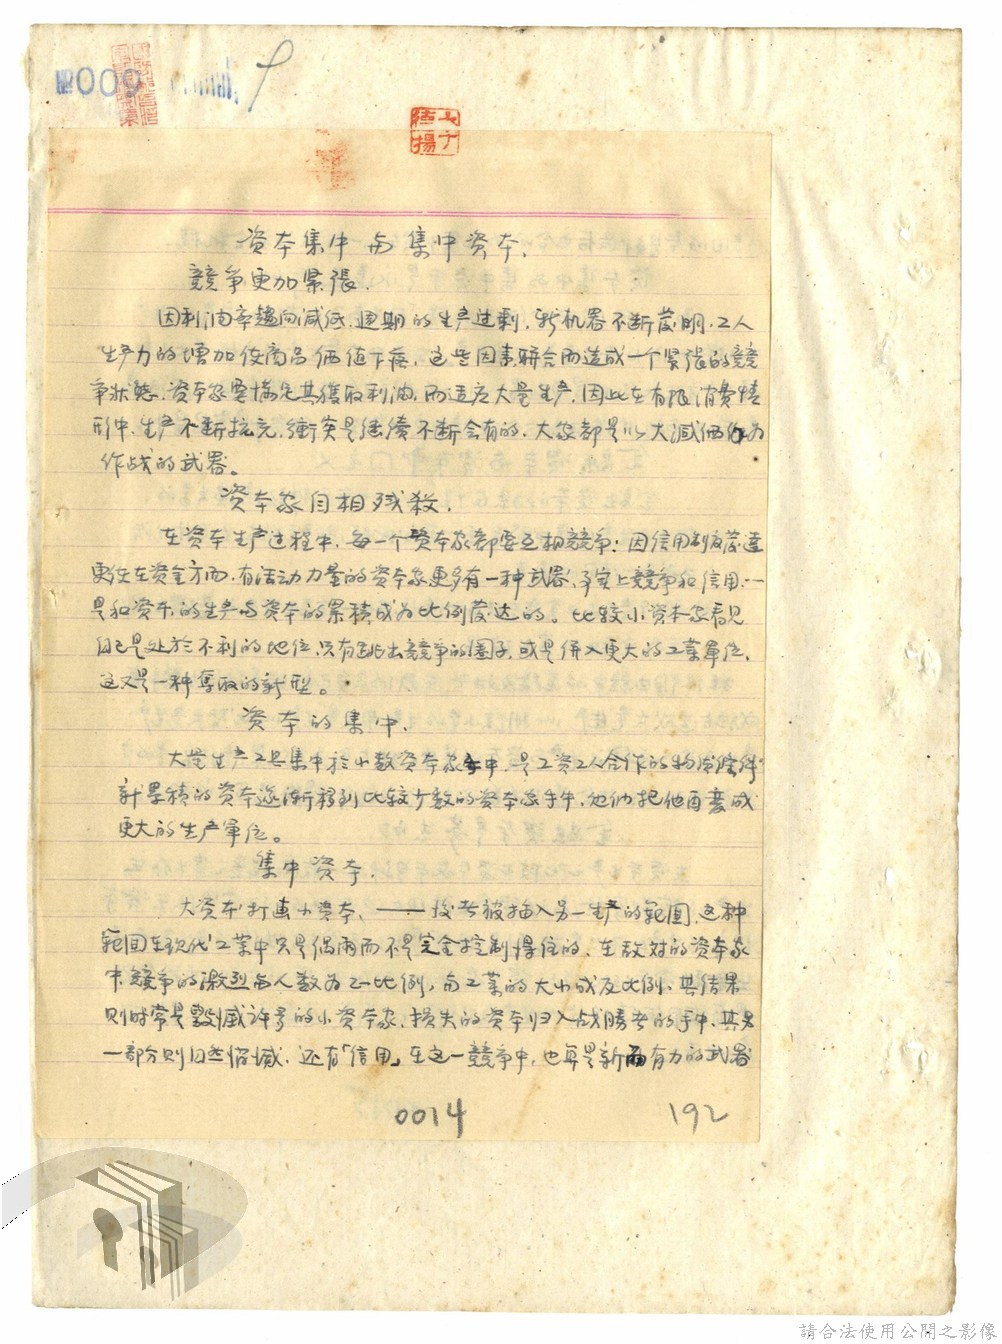 009
资本集中与集中资本.
競争更加紧張.
因利油率趨向減低.週期的生产过剩,新机器不断发明.工人
生产力的增加使商品価值下疟,这些因素联合而造成一个紧張的競
争状態.资本家要满足其獲取利油,而适应大量生产,因此在有限消费情
形中,生产不断拡充,衝突是继續不断会有的.大家都是以大減価作为
作战的武器。
资本家自相残殺.
在资本生产过程中,每一个资本家都要互相競争:因信用制度发達
更使在资金方面,有活动力量的资本家更多有一种武器,事实上競争和信用.一
是和资本的生产与资本的累積成为比例发达的。比较小资本家看見
自己是处於不利的地位,只有跳出競争的圈子,或是併入更大的工業单位,
这又是一种奪取的新型。
资本的集中.
大量生产工具集中於小数资本家手中,是工资工人合作的物质條件
新累積的资本逐渐移到比较少数的资本家手中,他们把他再变成
更大的生产单位。
集中资本.
大资本打垂小资本.——後者被插入另一生产的範圍,这种
範圍在现代工業中只是偶而而不是完全控制得住的.在敌对的资本家
中,競争的激烈与人数为正比例,与工業的大小成反比例.其结果
则时常是毀滅许多的小资本家,損失的资本归入战勝者的手中.其另
一部分则自然消滅.还有「信用」在这一競争中,也算是新而有力的武器
0014
192
請合法使用公開之影像